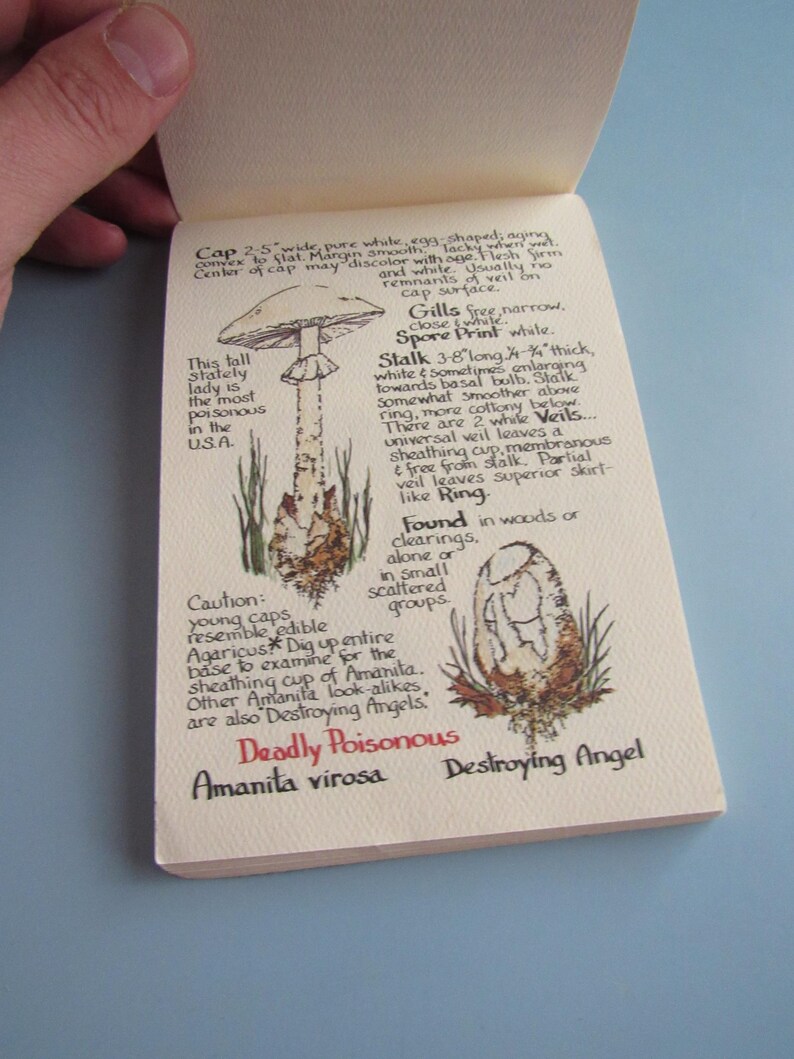 Cap 2-5" wide, pure white, egg-shaped; aging
convex to flat. Margin smooth. Tacky when wet.
Center of cap may discolor with age. Flesh firm
and white. Usually no
remnants of veil on
cap surface.
Gills free, narrow,
close & white.
Spore Print white.
This tall
stately
lady is
the most
poisonous
in the
U.S.A.
Stalk 3-8" long. ¼-¾" thick,
white & sometimes enlarging
towards basal bulb. Stalk
somewhat smoother above
ring, more cottony below.
There are 2 white Veils...
universal veil leaves a
sheathing cup, membranous
& free from stalk. Partial
veil leaves superior skirt-
like Ring.
Found in woods or
clearings,
alone or
in small
scattered
groups.
Caution:
young caps
resemble edible
Agaricus.* Dig up entire
base to examine for the
sheathing cup of Amanita.
Other Amanita look-alikes
are also "Destroying Angels."
Deadly Poisonous
Amanita virosa
Destroying Angel